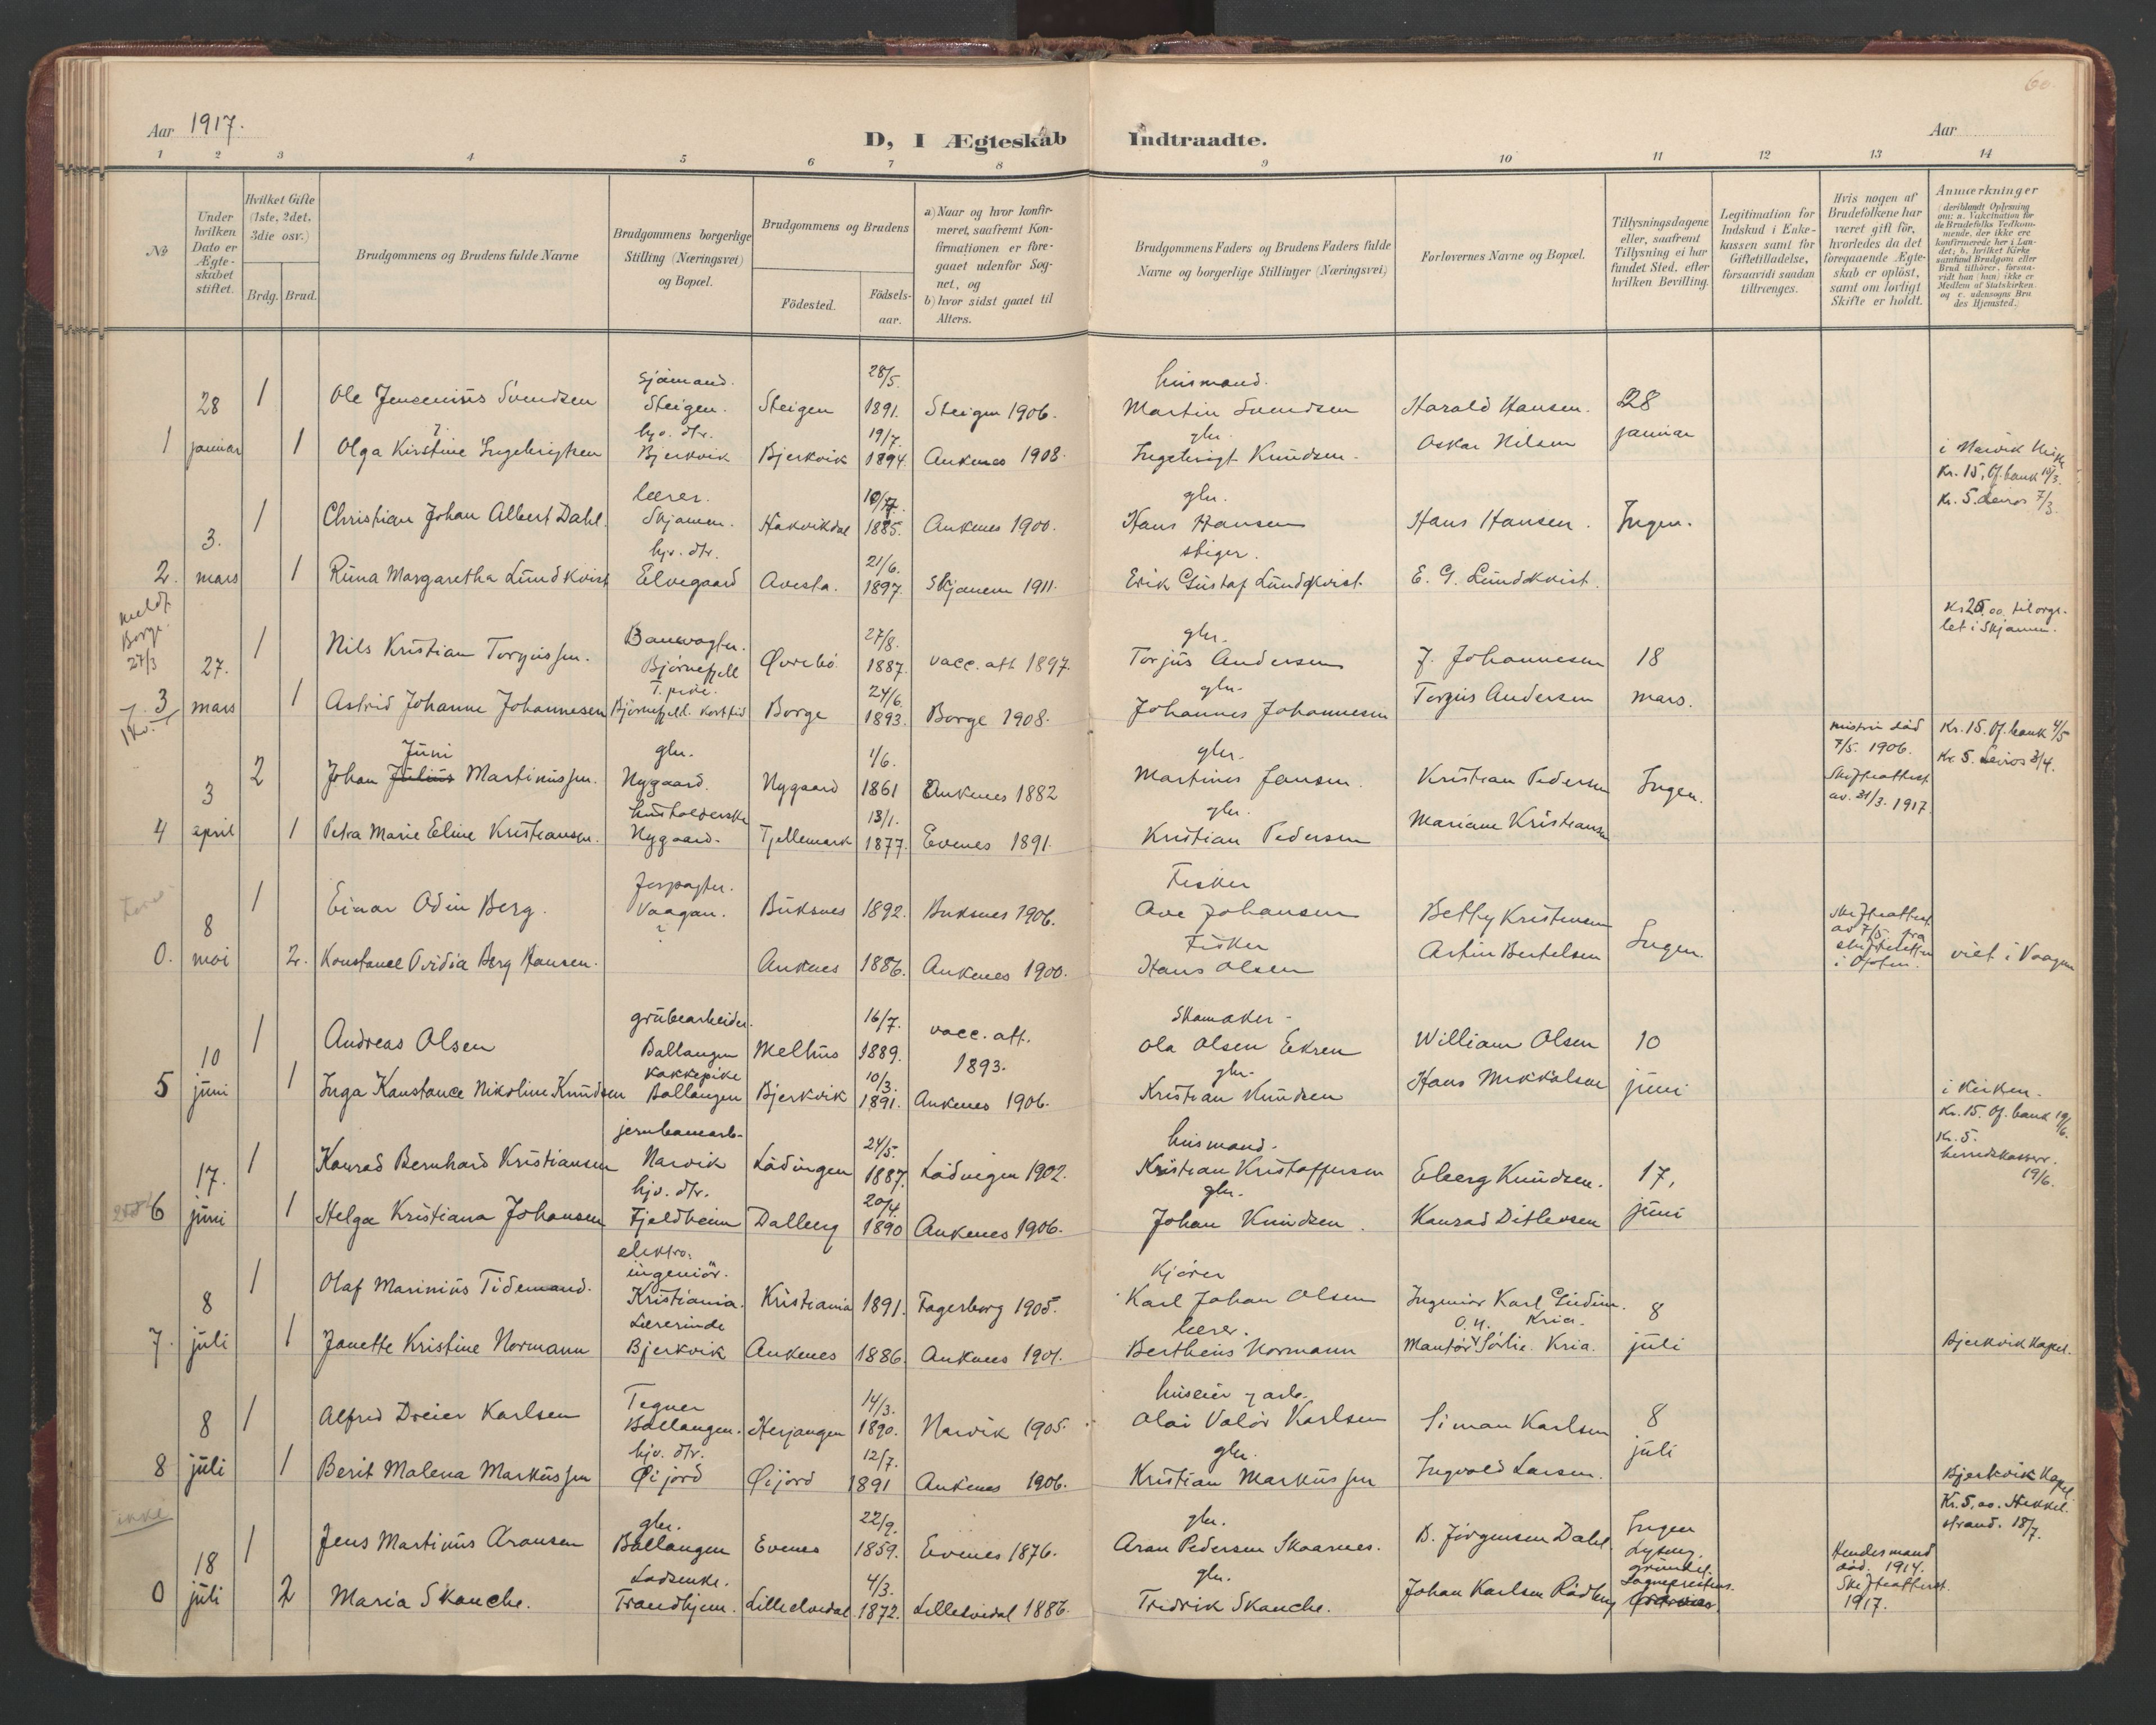 60.
Aar 1917.
D, I Ægteskab Indtraadte.
Aar
1 2 3 4 5 6 7 8 9 10 11 12 13 14
No
Under hvilken Dato er Ægteskabet stiftet.
Hvilket Gifte (1ste, 2det, 3die osv.)
Brdg. Brud.
Brudgommens og Brudens fulde Navne
Brudgommens borgerlige Stilling (Næringsvei) og Bopæl.
Brudgommens og Brudens
Födested.
Födsels-aar.
a) Naar og hvor konfirmeret, saafremt Konfirmationen er foregaaet udenför Sognet, og
b) hvor sidst gaaet til Alters.
Brudgommens Faders og Brudens Faders fulde Navne og borgerlige Stillinger (Næringsvei)
Forlovernes Navne og Bopæl.
Tillysningsdagene eller, saafremt Tillysning ei har fundet Sted, efter hvilken Bevilling.
Legitimation for Indskud i Enkekassen samt for Giftetilladelse, forsaavidt saadan tiltrænges.
Hvis nogen af Brudefolkene har været gift för, hvorledes da det foregaaende Ægteskab er oplöst, samt om lovligt Skifte er holdt.
Anmærkninger
(deriblandt Oplysning om: a. Vakcination for de Brudefolks Vedkommende, der ikke ere konfirmerede her i Landet; b. hvilket Kirkesamfund Brudgom eller Brud tilhörer, forsaavidt han (hun) ikke er Medlem af Statskirken og c. udensogns Brudes Hjemsted.)
28 1 Ole Jensenius Svendsen sjömand. Steigen. Steigen 28/5. 1891. Steigen 1906. husmand. Martin Svendsen Harald Hansen. 28
1 januar 1 Olga Kirstine Ingebrigtsen hjv. dtr. Bjerkvik Bjerkvik 19/7. 1894. Ankenes 1908. gbr. Ingebrigt Knudsen. Oskar Nilsen januar i Narvik Kirke
Kr. 15. Of. bank 10/3.
Kr. 5. Leiros 7/3.
3. 1 Christian Johan Albert Dahl. lærer. Skjomen. Haavikdal 1885. Ankenes 1900. gbr. Hans Hansen Hans Hansen. Ingen.
2. mars 1 Runa Margaretha Lundkvist hjv. dtr. Elvegaard Avesta. 21/6. 1897. Skjomen 1911. stiger. Erik Gustaf Lundqvist. E. G. Lundkvist.
Kr 25,00 til orgelet i Skjomen.
meldt Borge. 27/3
27. 1 Nils Kristian Torgussen. Banevogter. Björnefjell Øvrebö 27/8. 1887. vacc. att 1897. gbr. Torjus Andersen J. Johannesen 18
3 mars 1 Astrid Johanne Johannesen T. pike. Björnefjell. kort tid Borge 24/6. 1893. Borge 1908. gbr. Johannes Johannesen Torgus Andersen mars.
3 2 Johan Julius Juni Martinussen. gbr. Nygaard. Nygaard 1/6. 1861 Ankenes 1882 gbr. Martinus Jansen. Kristian Pedersen Ingen. hustru död 7/5. 1906. Skifteattest av 31/3. 1917 Kr. 15. Of. bank 4/5 Kr. 5. Leiros 3/4.
4 april 1 Petra Marie Eline Kristiansen. husholderske Nygaard. Tjellemark 13/1. 1877. Evenes 1891. gbr. Kristian Pedersen Mariane Kristiansen
8 1 Einar Odin Berg. forpagter. Vaagan. Buksnes 1892. Buksnes 1906. Fisker Ove Johansen Betty Kristensen
0. mai 2. Konstanse Ovidia Berg Hansen. ? Ankenes 1886. Ankenes 1900. Fisker Hans Olsen Artin Bertelsen Ingen. skifteattest av 7/5. fra skifteretten i Ofoten. viet i Vaagan
10 1 Andreas Olsen grubearbeider. Ballangen Melhus 16/7. 1889. vacc. att. 1893. Skomaker. Ola Olsen Ekren William Olsen 10
5 juni 1 Inga Konstance Nikoline Knudsen kokkepike Ballangen Bjerkvik 10/3. 1891. Ankenes 1906. gbr. Kristian Knudsen Hans Mikkalsen juni i Kirken.
Kr. 15. Of. bank 19/6.
Kr. 5. herredskasserer. 19/6.
17. 1 Konrad Bernhard Kristiansen jernbanearb. Narvik Lödingen 24/5. 1887. Lödingen 1902. husmand. Kristian Kristoffersen Eberg Knudsen. 17,
6 juni 1 Helga Kristiana Johansen hjv. dtr. Fjeldheim Dalberg 20/4. 1890 Ankenes 1906. gbr. Johan Knudsen. Konrad Ditlevsen juni
8 1 Olaf Marinius Tidemand. elektro. ingeniör. Kristiania. Kristiania 1891. Fagerborg 1905. Kjörer Karl Johan Olsen Ingeniör Karl Gudim. Kria. 8
7. juli 1 Janette Kristine Normann Lærerinde Bjerkvik Ankenes 1886. Ankenes 1901. lærer. Bertheus Normann Mantör Sörlie. Kria. juli Bjerkvik Kapel.
8 1 Alfred Dreier Karlsen Tegner Ballangen. Herjangen 14/3. 1890. Narvik 1905. huseier og arb. Olai Valör Karlsen Simon Karlsen 8
8 juli 1 Berit Malena Markussen hjv. dtr. Øijord Øijord 12/7. 1891 Ankenes 1906. gbr. Kristian Markussen Ingvald Larsen. juli Bjerkvik Kapel.
Kr. 5,00. Hekkelstrand. 18/7.
ikke
18 1 Jens Martinus Aronsen gbr. Ballangen Evenes 22/9. 1859. Evenes 1876. gbr. Aron Pedersen Skoarnes. D. Jörgensen Dahl. Ingen Lysning.
0 juli 2 Maria Skanche. Losdenke. Trondhjem. Lilleelvedal 4/3. 1872. Lilleelvedal 1886. gbr. Fredrik Skanche. Johan Karlsen Rödberg Hendes mand död. 1914. Skifteattest. 1917.